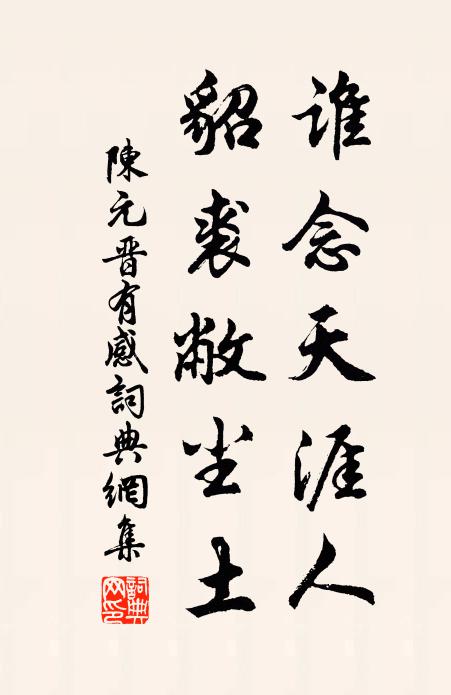 誰念天涯人
貂裘敝尘土
陳元晋有感詞典網集
詞典网印